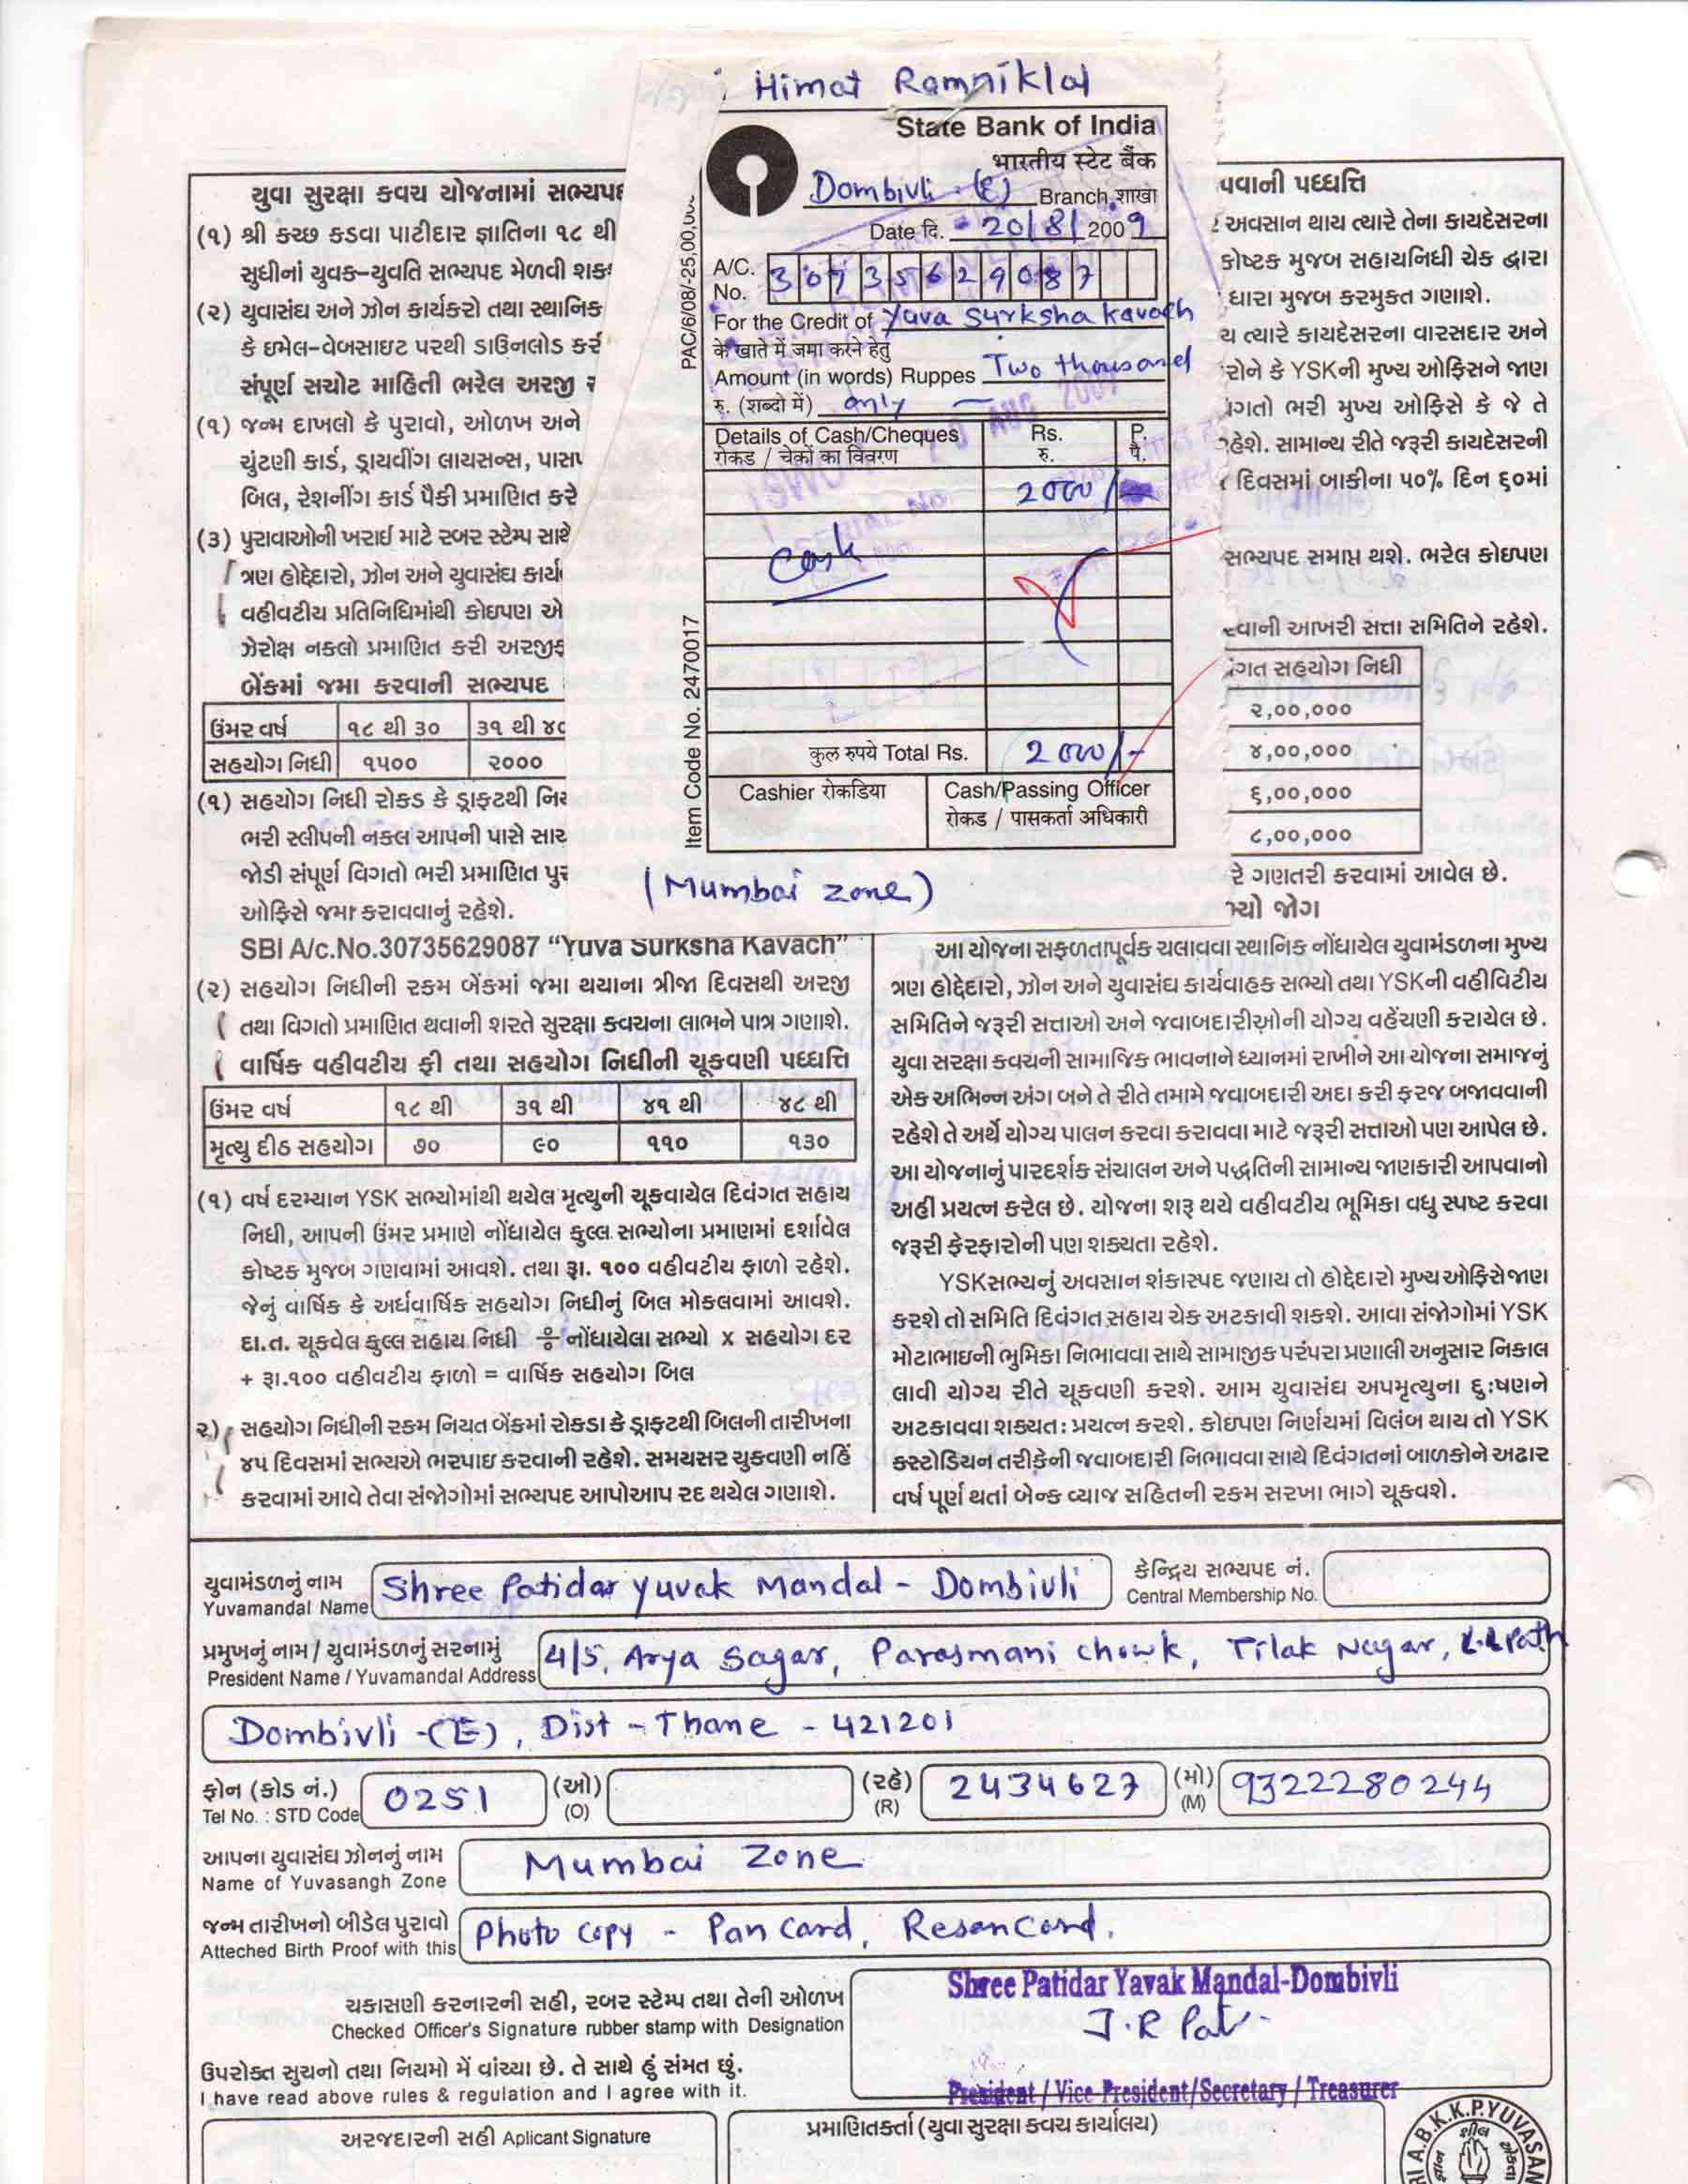 Himat Ramniklal
State Bank of India
भारतीय स्टेट बैंक
Dombivli (E) Branch शाखा
Date दि. 20/8/2009
PAC/6/08/-25,00,00
A/C. No. 30735629087
For the Credit of Yuva Surksha Kavach
के खाते में जमा करने हेतु
Amount (in words) Ruppes Two thousand
रु. (शब्दो में) only
Details of Cash/Cheques Rs. P.
रोकड / चेकों का विवरण रु. पै.
2000/
Cash
Item Code No. 2470017
कुल रुपये Total Rs. 2000/-
Cashier रोकडिया Cash/Passing Officer
रोकड / पासकर्ता अधिकारी
(Mumbai zone)
યુવા સુરક્ષા કવચ યોજનામાં સભ્યપદ
(૧) શ્રી કચ્છ કડવા પાટીદાર જ્ઞાતિના ૧૮ થી
સુધીનાં યુવક-યુવતિ સભ્યપદ મેળવી શક
(૨) યુવાસંઘ અને ઝોન કાર્યકરો તથા સ્થાનિક
કે ઇમેલ-વેબસાઇટ પરથી ડાઉનલોડ કરી
સંપૂર્ણ સચોટ માહિતી ભરેલ અરજી
(૧) જન્મ દાખલો કે પુરાવો, ઓળખ અને
ચુંટણી કાર્ડ, ડ્રાયવીંગ લાયસન્સ, પાસ
બિલ, રેશનીંગ કાર્ડ પૈકી પ્રમાણિત કરે
(૩) પુરાવાઓની ખરાઇ માટે રબર સ્ટેમ્પ સાથે
ત્રણ હોદ્દેદારો, ઝોન અને યુવાસંઘ કાર્ય
વહીવટીય પ્રતિનિધિમાંથી કોઇપણ એ
ઝેરોક્ષ નકલો પ્રમાણિત કરી અરજી
બેંકમાં જમા કરવાની સભ્યપદ
ઉંમર વર્ષ ૧૮ થી ૩૦ ૩૧ થી ૪૦
સહયોગ નિધી ૧૫૦૦ ૨૦૦૦
(૧) સહયોગ નિધી રોકડ કે ડ્રાફટથી નિ
ભરી સ્લીપની નકલ આપની પાસે સા
જોડી સંપૂર્ણ વિગતો ભરી પ્રમાણિત પુ
ઓફિસે જમા કરાવવાનું રહેશે.
SBI A/c.No.30735629087 “Yuva Surksha Kavach”
(૨) સહયોગ નિધીની રકમ બેંકમાં જમા થયાના ત્રીજા દિવસથી અરજી
તથા વિગતો પ્રમાણિત થવાની શરતે સુરક્ષા કવચના લાભને પાત્ર ગણાશે.
વાર્ષિક વહીવટીય ફી તથા સહયોગ નિધીની ચૂકવણી પધ્ધત્તિ
ઉંમર વર્ષ ૧૮ થી ૩૧ થી ૪૧ થી ૪૮ થી
મૃત્યુ દીઠ સહયોગ ૭૦ ૯૦ ૧૧૦ ૧૩૦
(૧) વર્ષ દરમ્યાન YSK સભ્યોમાંથી થયેલ મૃત્યુની ચૂકવાયેલ દિવંગત સહાય
નિધી, આપની ઉંમર પ્રમાણે નોંધાયેલ કુલ્લ સભ્યોના પ્રમાણમાં દર્શાવેલ
કોષ્ટક મુજબ ગણવામાં આવશે. તથા રૂા. ૧૦૦ વહીવટીય ફાળો રહેશે.
જેનું વાર્ષિક કે અર્ધવાર્ષિક સહયોગ નિધીનું બિલ મોકલવામાં આવશે.
દા.ત. ચૂકવેલ કુલ્લ સહાય નિધી ÷ નોંધાયેલા સભ્યો x સહયોગ દર
+ રૂા.૧૦૦ વહીવટીય ફાળો = વાર્ષિક સહયોગ બિલ
૨) સહયોગ નિધીની રકમ નિયત બેંકમાં રોકડા કે ડ્રાફટથી બિલની તારીખના
૪૫ દિવસમાં સભ્યએ ભરપાઇ કરવાની રહેશે. સમયસર ચુકવણી નહિં
કરવામાં આવે તેવા સંજોગોમાં સભ્યપદ આપોઆપ રદ થયેલ ગણાશે.
પવાની પધ્ધત્તિ
અવસાન થાય ત્યારે તેના કાયદેસરના
કોષ્ટક મુજબ સહાયનિધી ચેક દ્વારા
ધારા મુજબ કરમુક્ત ગણાશે.
ય ત્યારે કાયદેસરના વારસદાર અને
રોને કે YSKની મુખ્ય ઓફિસને જાણ
ગતો ભરી મુખ્ય ઓફિસે કે જે તે
રહેશે. સામાન્ય રીતે જરૂરી કાયદેસરની
દિવસમાં બાકીના ૫૦% દિન ૬૦માં
સભ્યપદ સમાપ્ત થશે. ભરેલ કોઇપણ
વાની આખરી સત્તા સમિતિને રહેશે.
ંગત સહયોગ નિધી
૨,૦૦,૦૦૦
૪,૦૦,૦૦૦
૬,૦૦,૦૦૦
૮,૦૦,૦૦૦
રે ગણતરી કરવામાં આવેલ છે.
ભ્યો જોગ
આ યોજના સફળતાપૂર્વક ચલાવવા સ્થાનિક નોંધાયેલ યુવામંડળના મુખ્ય
ત્રણ હોદ્દેદારો, ઝોન અને યુવાસંઘ કાર્યવાહક સભ્યો તથા YSKની વહીવિટીય
સમિતિને જરૂરી સત્તાઓ અને જવાબદારીઓની યોગ્ય વહેંચણી કરાયેલ છે.
યુવા સરક્ષા કવચની સામાજિક ભાવનાને ધ્યાનમાં રાખીને આ યોજના સમાજનું
એક અભિન્ન અંગ બને તે રીતે તમામે જવાબદારી અદા કરી ફરજ બજાવવાની
રહેશે તે અર્થે યોગ્ય પાલન કરવા કરાવવા માટે જરૂરી સત્તાઓ પણ આપેલ છે.
આ યોજનાનું પારદર્શક સંચાલન અને પદ્ધતિની સામાન્ય જાણકારી આપવાનો
અહીં પ્રયત્ન કરેલ છે. યોજના શરૂ થયે વહીવટીય ભૂમિકા વધુ સ્પષ્ટ કરવા
જરૂરી ફેરફારોની પણ શક્યતા રહેશે.
YSKસભ્યનું અવસાન શંકાસ્પદ જણાય તો હોદ્દેદારો મુખ્ય ઓફિસે જાણ
કરશે તો સમિતિ દિવંગત સહાય ચેક અટકાવી શકશે. આવા સંજોગોમાં YSK
મોટાભાઇની ભુમિકા નિભાવવા સાથે સામાજીક પરંપરા પ્રણાલી અનુસાર નિકાલ
લાવી યોગ્ય રીતે ચૂકવણી કરશે. આમ યુવાસંઘ અપમૃત્યુના દુઃષણને
અટકાવવા શક્યતઃ પ્રયત્ન કરશે. કોઇપણ નિર્ણયમાં વિલંબ થાય તો YSK
કસ્ટોડિયન તરીકેની જવાબદારી નિભાવવા સાથે દિવંગતનાં બાળકોને અઢાર
વર્ષ પૂર્ણ થતાં બેન્ક વ્યાજ સહિતની રકમ સરખા ભાગે ચૂકવશે.
યુવામંડળનું નામ Shree Patidar Yuvak Mandal - Dombivli કેન્દ્રિય સભ્યપદ નં.
Yuvamandal Name Central Membership No.
પ્રમુખનું નામ / યુવામંડળનું સરનામું 4/5, Arya Sagar, Parasmani chowk, Tilak Nagar, L.L Path
President Name / Yuvamandal Address
Dombivli -(E), Dist - Thane - 421201
ફોન (કોડ નં.) 0251 (ઓ) (રહે) 2434627 (મો) 9322280244
Tel No. : STD Code (O) (R) (M)
આપના યુવાસંઘ ઝોનનું નામ Mumbai Zone
Name of Yuvasangh Zone
જન્મ તારીખનો બીડેલ પુરાવો Photo copy - Pan Card, Resan Card.
Atteched Birth Proof with this
Shree Patidar Yavak Mandal-Dombivli
ચકાસણી કરનારની સહી, રબર સ્ટેમ્પ તથા તેની ઓળખ
Checked Officer's Signature rubber stamp with Designation
J.R Pat
ઉપરોક્ત સુચનો તથા નિયમો મેં વાંચ્યા છે. તે સાથે હું સંમત છું.
I have read above rules & regulation and I agree with it.
President / Vice President/Secretary / Treasurer
અરજદારની સહી Aplicant Signature
પ્રમાણિતકર્તા (યુવા સુરક્ષા કવચ કાર્યાલય)
A.B.K.K.P.YUVASAN